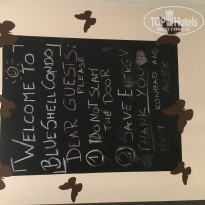 WELCOME TO
BLUESHELL CONDO!
DEAR GUESTS:
PLEASE
① DO NOT SLAM
THE DOOR
② SAVE ENERGY
THANK YOU
KONRAD AND
TOPHOTELS